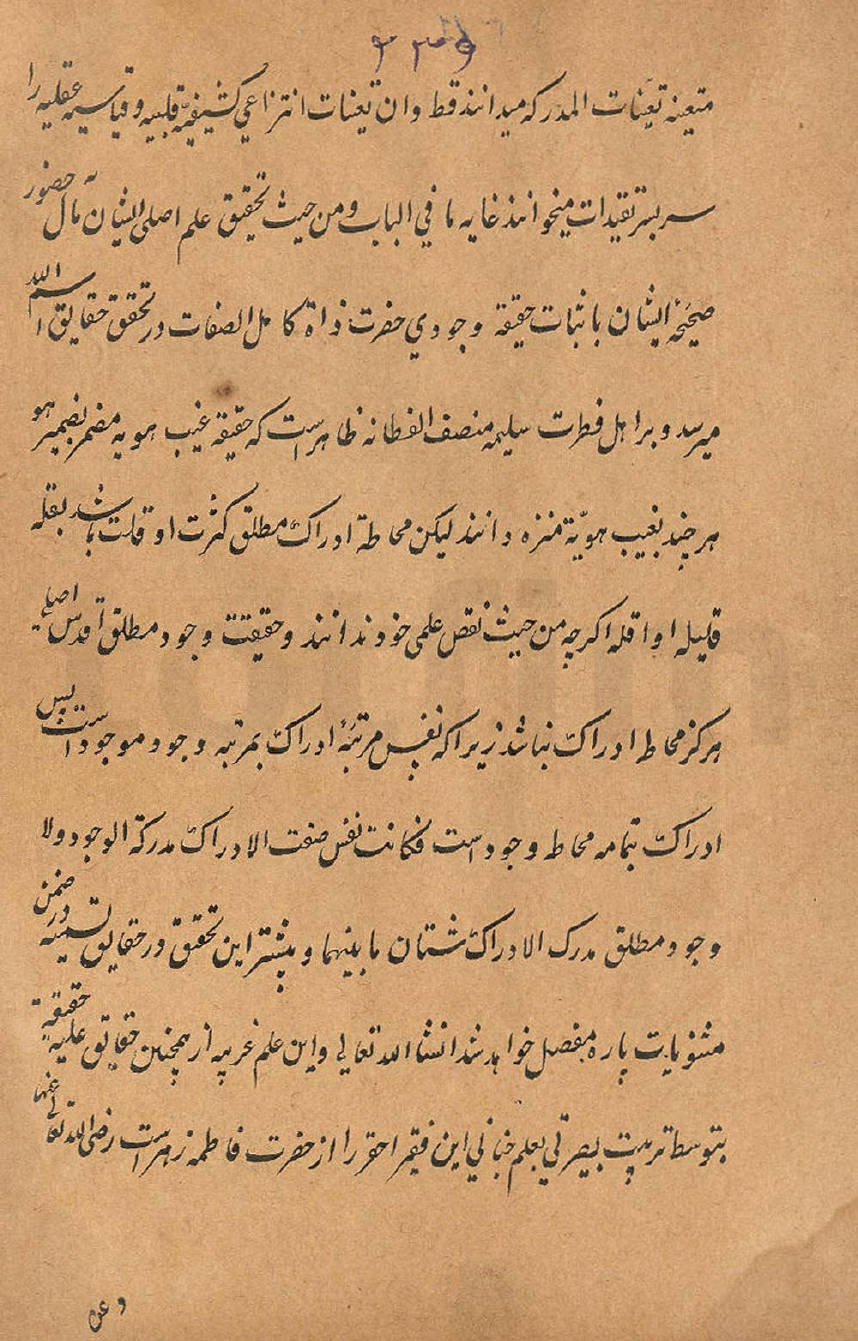 ۲۳۹
متعینه تعینات المدرکه میدانند قط و ان تعینات انتزاعي کشیفیه قلبیه و قیاسیه عقلیه را
سربسر تقیدات میخوانند غایه ما في الباب و من حیث تحقیق علم اصلی ایشان مآل حضور
صحیحهٔ ایشان باثبات حقیقة وجودي حضرت ذاة کامل الصفات در تحقق حقایق اسم الله
میرسد و بر اهل فطرات سلیمه منصف الفطانه ظاهر است که حقیقة غیب هویه مضمر بضمیر هو
هر چند بغیب هویّة منزه دانند لیکن محاطة ادراک مطلق کثرت او قلت باشد بقلة
قلیله او اقله اکرچه من حیث نقص علمی خود ندانند و حقیقت وجود مطلق اقدس اصلی
هرکز محاط ادراک نباشد زیرا که نفس مرتبهٔ ادراک بمرتبه وجود موجود است پس
ادراک بتمامه محاط وجود است فکانت نفس صفت الادراک مدرکة الوجود ولا
وجود مطلق مدرک الادراک شتان ما بینهما و بیشتر این تحقق در حقایق در ضمن
مثنویات پاره مفصل خواهد شد انشا الله تعالی و این علم غریبه از همچنین حقایق علیه حقیقیة
بتوسط تربیت بیصرتی بعلم جنانی این فقیر احقر را از حضرت فاطمه زهرا است رضی الله تعالی عنها
و عن